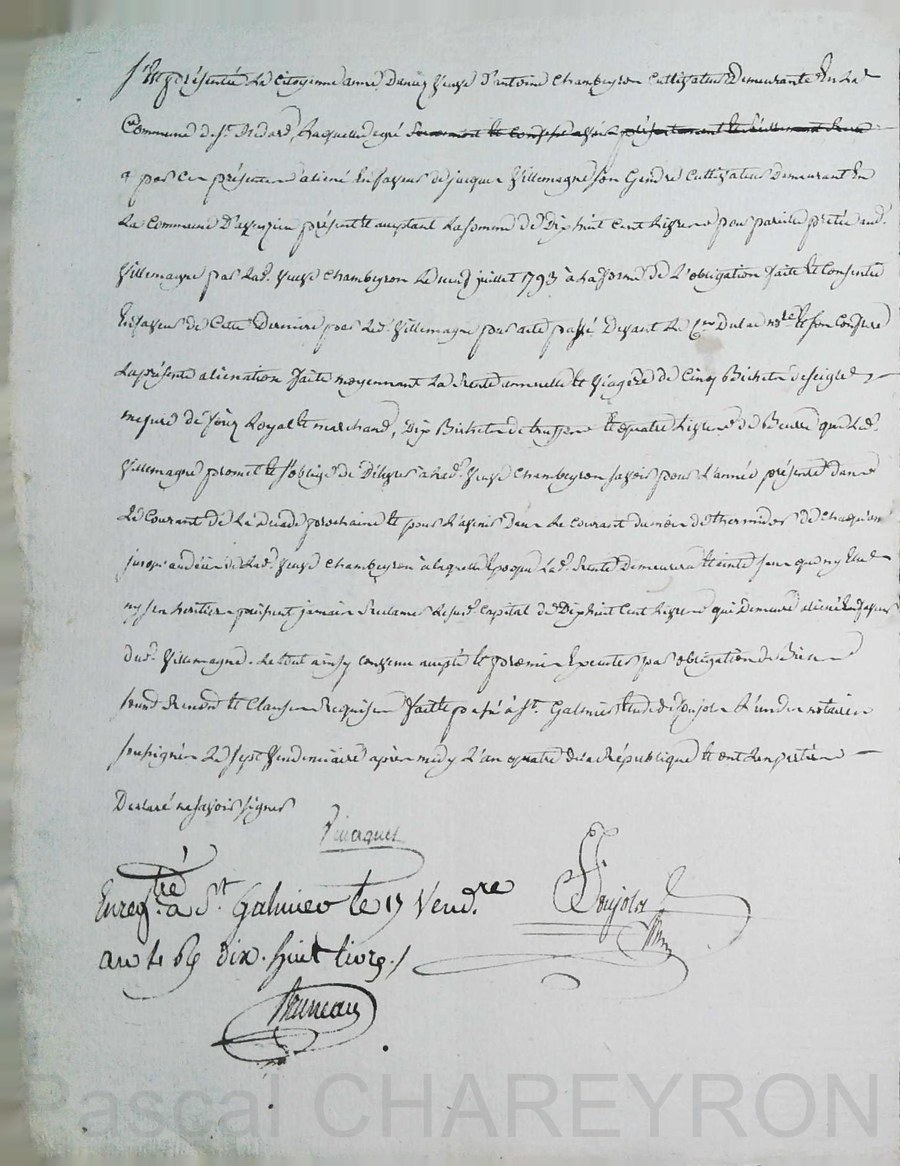 S'est présentée La Citoyenne anne Deville Veuve d'antoine Chambeyron Cultivateur Demeurante En La
Commune de St. Médard, Laquelle de gré
a par Ces présentes aliéné En faveur de jacques Villemagne son Gendre Cultivateur Demeurant En
La Commune D'aveizieu présent et acceptant La somme de Dixhuit Cent Livres pour pareille prétée aud.
Villemagne par Lad. Veuve Chambeyron Le neuf juillet 1793 à La forme de L'obligation faite et Consentie
En faveur de Cette Derniere par Led. Villemagne par acte passé Devant Le Cen Dulac nre et son Confrere
La présente alienation faite moyennant La Rente annuelle et Viagère de Cinq Bichets de seigle,
mesure de forez Loyal et marchand, Dix Bichets de truffes et quatre Livres de Beurre que Led.
Villemagne promet et s'oblige de Délivrer à Lad. Veuve Chambeyron savoir pour L'année présente dans
Le Courant de La Décade prochaine et pour L'avenir dans Le courant du mois de thermidor de chaque année
jusqu'au décès de Lad. Veuve Chambeyron à laquelle Epoque Lad. Rente Demeurera Eteinte sans que ny Elle
ny ses heritiers puissent jamais Reclamer Le susd. Capital de Dixhuit Cent Livres qui Demeure aliéné En faveur
dud. Villemagne. Le tout ainsy convenu accepté et promis Executer par obligation de Biens
soumd. Renond. et Clauses Requises faitte passé à St. Galmier Etude de Poujola L'un des notaires
soussignés Le sept Vendemiaire après midy L'an quatre de la République et ont Les parties
Declaré ne savoir signer
Poujola
Enregtré à St. Galmier le 17 Vend.re
an 4e dix-huit livres /
Bruneau
Pascal CHAREYRON